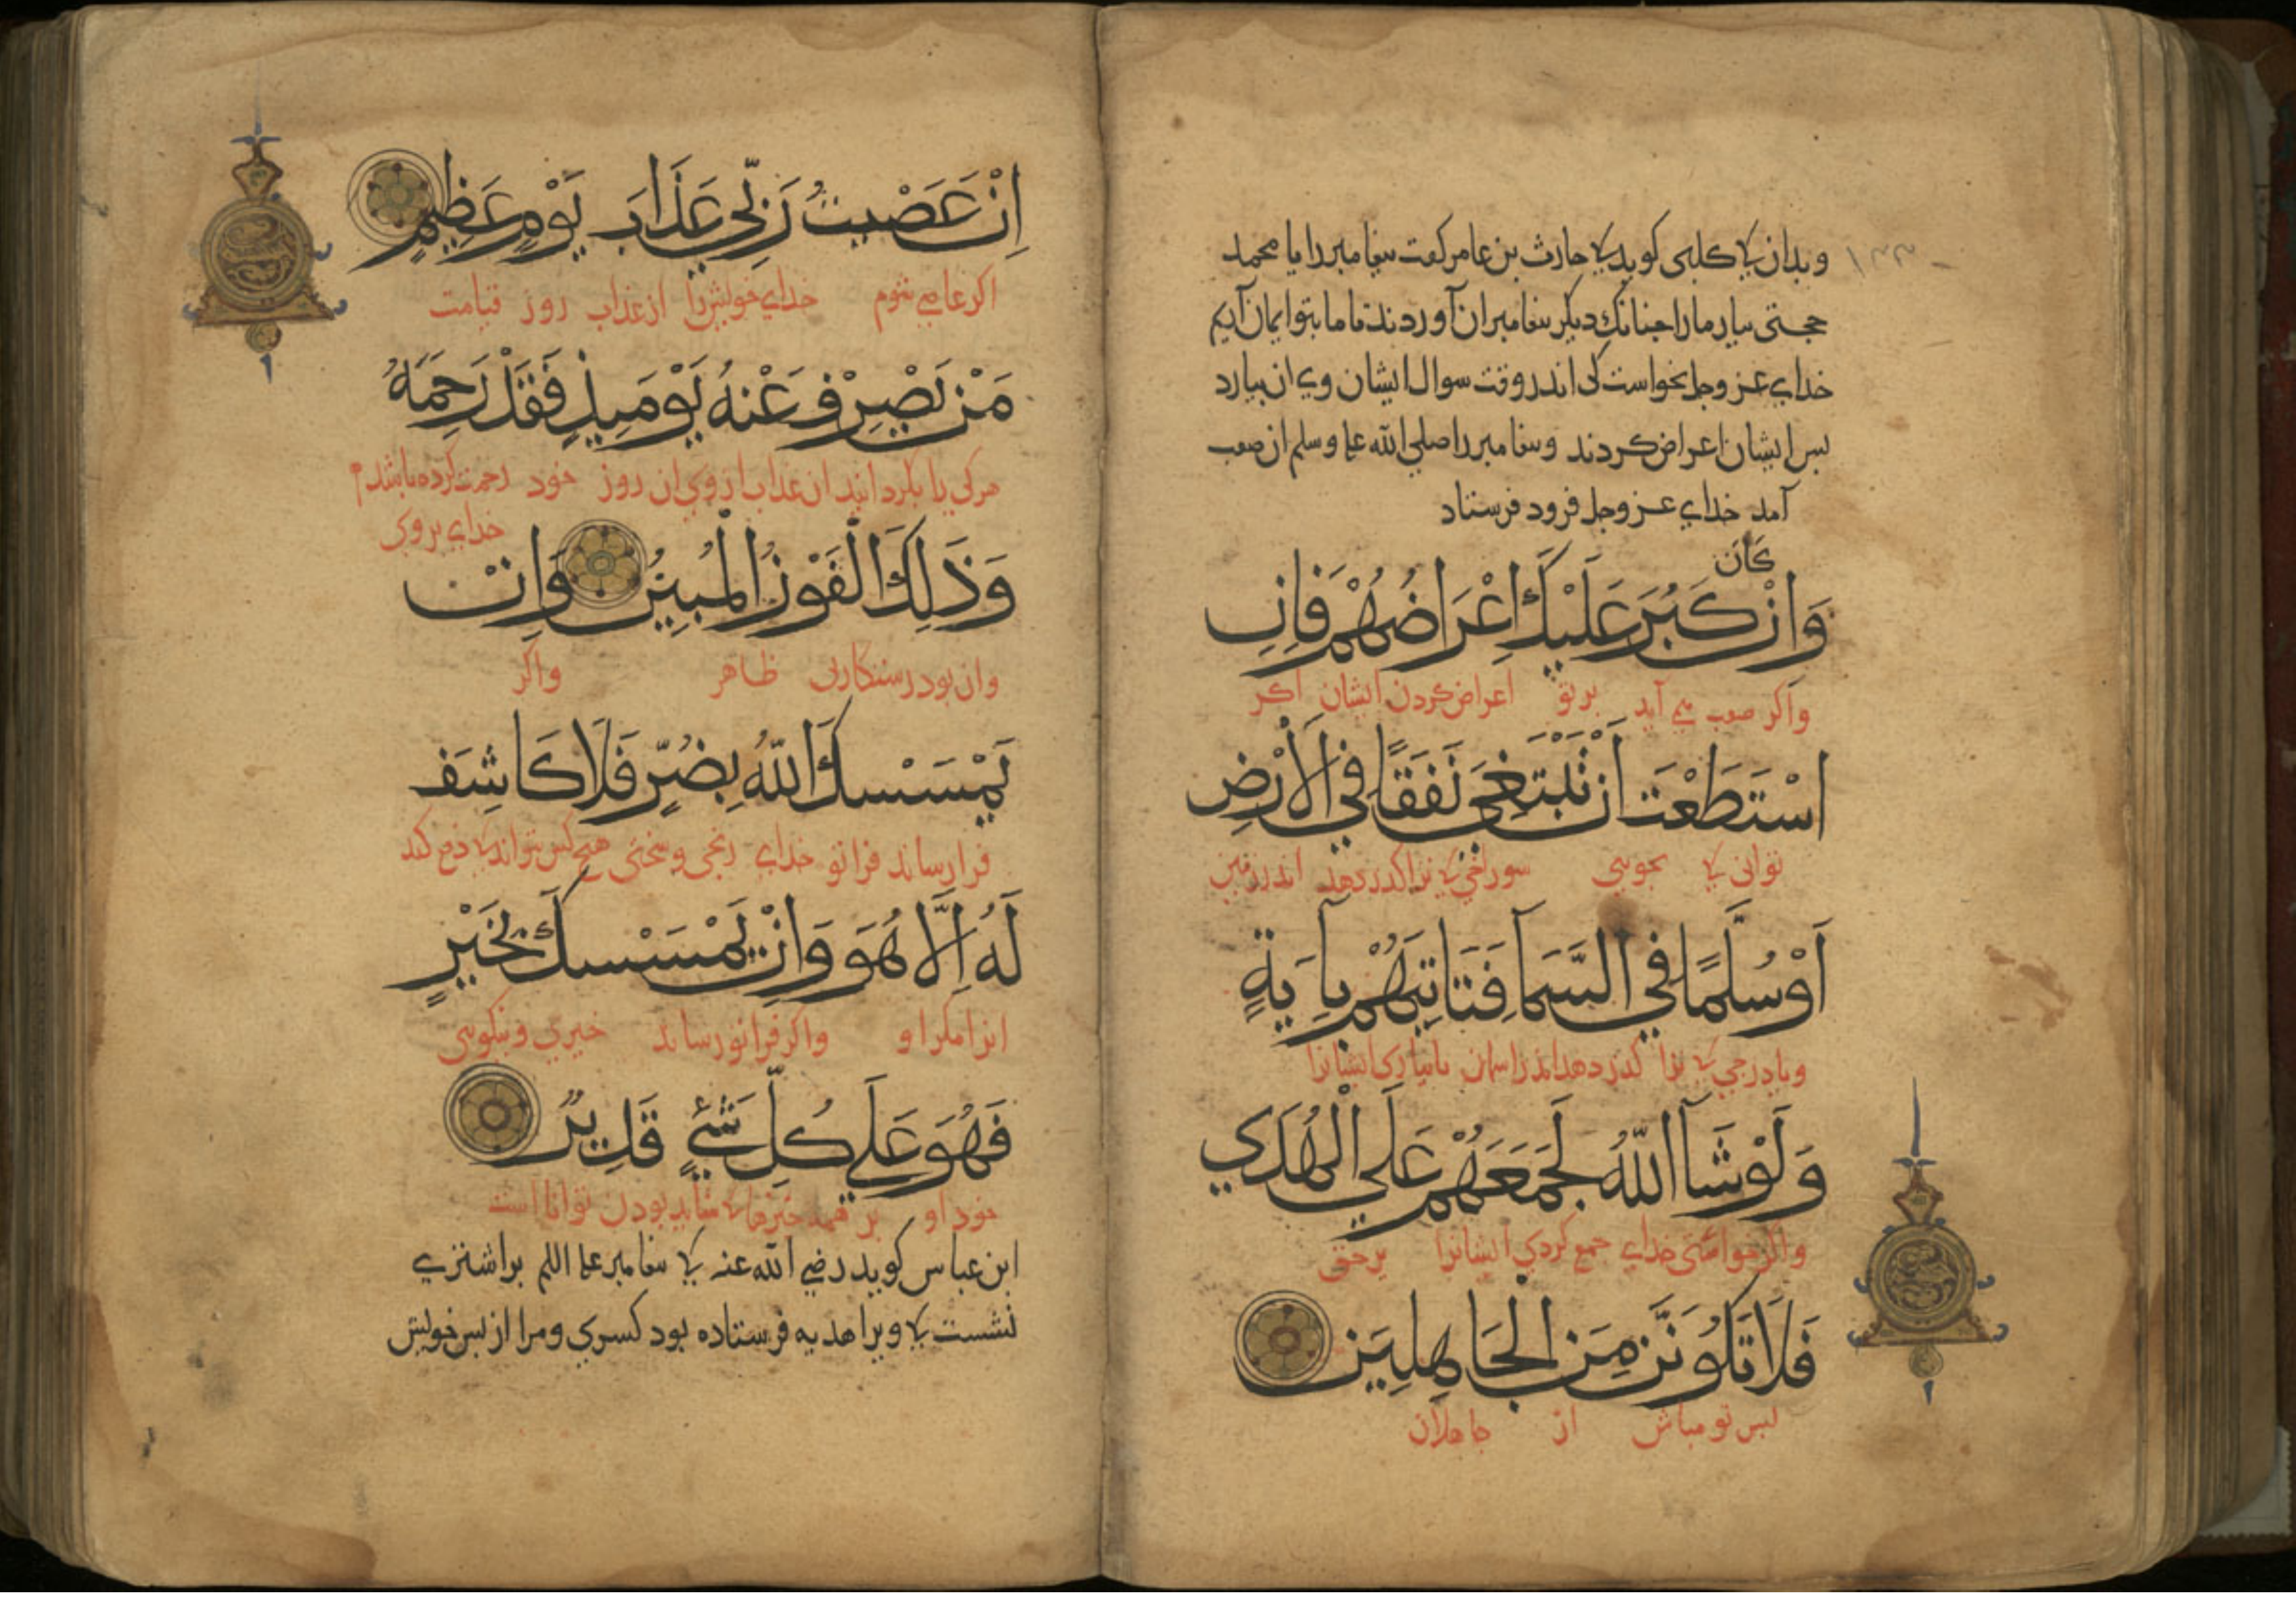 وبدان کی کلبی کوید کی حارث بن عامر کفت بیغامبر را یا محمد
حجتی بیار ما را جنانک دیکر بیغامبران آوردند تا ما بتو ایمان آریم
خدای عز وجل نخواست کی اندر وقت سوال ایشان وی ان بیارد
بس ایشان اعراض کردند و بیغامبر را صلی الله علیه وسلم ان صعب
آمد خدای عز وجل فرود فرستاد
كَانَ
وَاِنْ كَبُرَ عَلَيْكَ اِعْرَاضُهُمْ فَاِنِ
واکر صعب می آید بر تو اعراض کردن ایشان اکر
اسْتَطَعْتَ اَنْ تَبْتَغِيَ نَفَقًا فِي الْاَرْضِ
توانی کی بجویی سوراخی کی ترا کذر دهد اندر زمین
اَوْ سُلَّمًا فِي السَّمَآ فَتَاتِيَهُمْ بِاَيَةٍ
ویا درجی کی ترا کذر دهد اندر اسمان تا بیاری ایشانرا
وَلَوْ شَآ اللّٰهُ لَجَمَعَهُمْ عَلَي الْهُدَي
واکر خواستی خدای جمع کردی ایشانرا بر حق
فَلَا تَكُونَنَّ مِنَ الْجَاهِلِيَن
بس تو مباش از جاهلان
اِنْ عَصَيْتُ رَبِّي عَذَابَ يَوْمٍ عَظِيمٍ
اکر عاصی شوم خدای خویش را از عذاب روز قیامت
مَنْ يُصْرَفْ عَنْهُ يَوْمَيِذٍ فَقَدْ رَحِمَهُ
هرکی را بکردانند ان عذاب از وی ان روز خود رحمت کرده باشد
خدای بر وی
وَذَلِكَ الْفَوْزُ الْمُبِيُن وَاِنْ
وان بود رستکاری ظاهر واکر
يَمْسَسْكَ اللّٰهُ بِضُرٍّ فَلَا كَاشِفَ
فرارساند فرا تو خدای رنجی و سختی هیچ کس نتواند کی دفع کند
لَهُ اِلَّا هُوَ وَاِنْ يَمْسَسْكَ بِخَيْرٍ
انرا مکر او واکر فرا تو رساند خیری و نیکویی
فَهُوَ عَلَي كُلِّ شَيْءٍ قَدِيرٌ
خود او بر همه جیزها کی شاید بودن توانا است
ابن عباس کوید رضی الله عنه کی بیغامبر علیه السلم بر اشتری
نشست کی ویرا هدیه فرستاده بود کسری ومرا از بس خویش